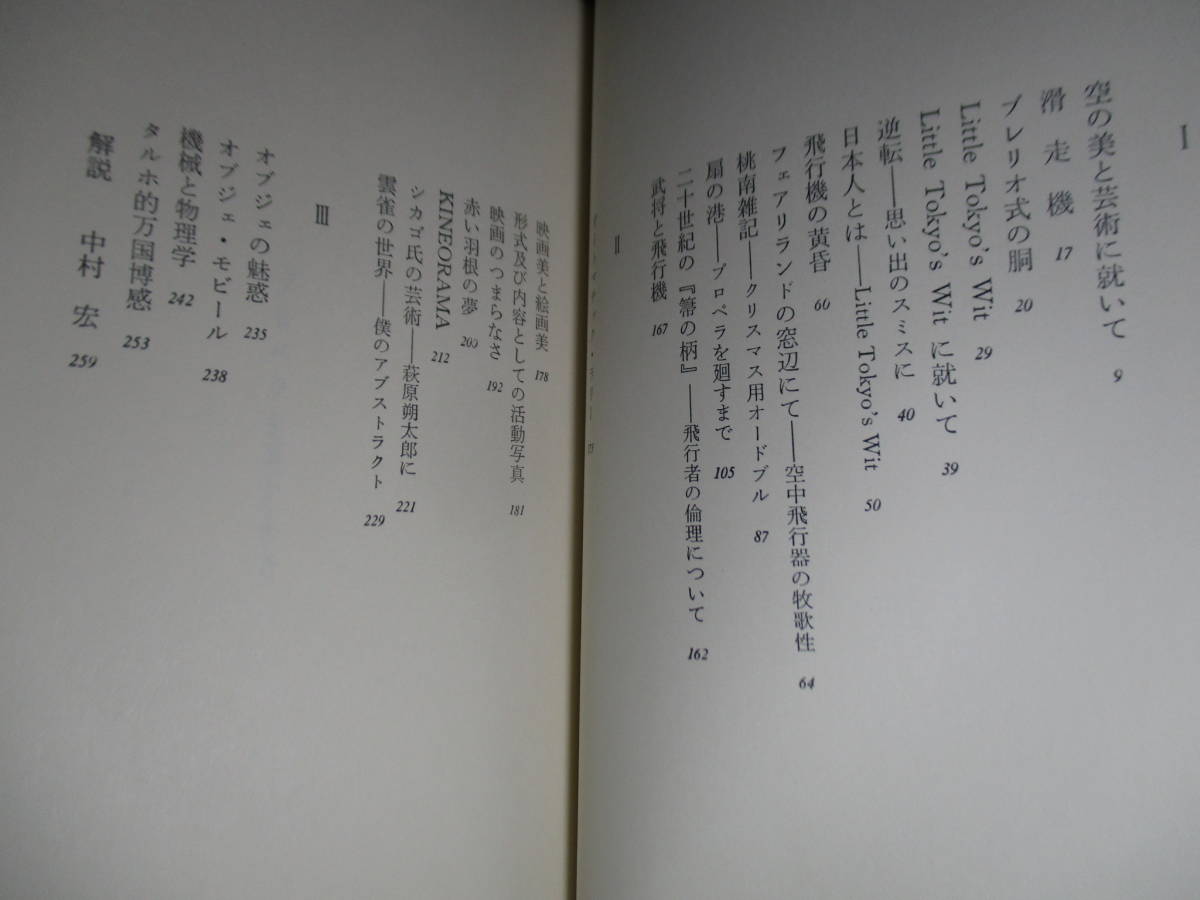 I
空の美と芸術に就いて 9
滑走機 17
ブレリオ式の胴 20
Little Tokyo's Wit 29
Little Tokyo's Wit に就いて 39
逆転――思い出のスミスに 40
日本人とは――Little Tokyo's Wit 50
飛行機の黄昏 60
フェアリランドの窓辺にて――空中飛行器の牧歌性 64
桃南雑記――クリスマス用オードブル 87
扇の港――プロペラを廻すまで 105
二十世紀の『箒の柄』――飛行者の倫理について 162
武将と飛行機 167
II
映画美と絵画美 178
形式及び内容としての活動写真 181
映画のつまらなさ 192
赤い羽根の夢 200
KINEORAMA 212
シカゴ氏の芸術――萩原朔太郎に 221
雲雀の世界――僕のアブストラクト 229
III
オブジェの魅惑 235
オブジェ・モビール 238
機械と物理学 242
タルホ的万国博感 253
解説 中村宏 259